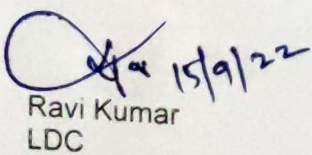 15/9/22
Ravi Kumar
LDC